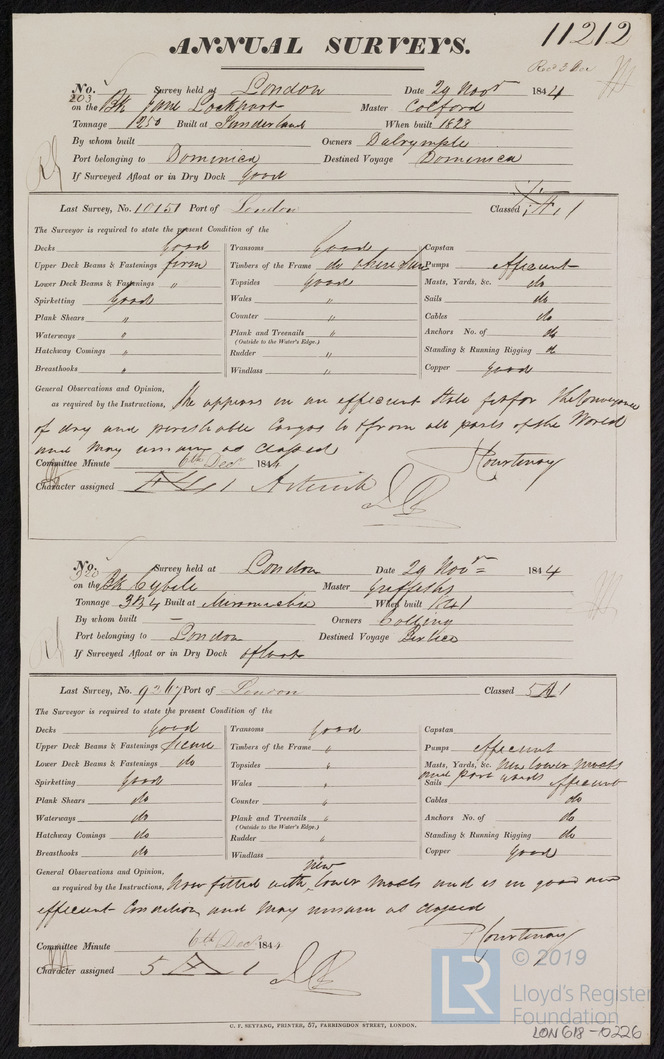 11212
ANNUAL SURVEYS.
No. 203 Survey held at London Date 29 Novr 1844
on the Bk Jane Lockhart Master Colford
Tonnage 1250 Built at Sunderland When built 1828
By whom built Owners Dalrymple
Port belonging to Dominica Destined Voyage Dominica
If Surveyed Afloat or in Dry Dock good
Last Survey, No. 10151 Port of London Classed 1
The Surveyor is required to state the present Condition of the
Decks Good Transoms Good Capstan
Upper Deck Beams & Fastenings firm Timbers of the Frame do where seen Pumps efficient
Lower Deck Beams & Fastenings " Topsides good Masts, Yards, &c. do
Spirketting Good Wales " Sails do
Plank Shears " Counter " Cables do
Waterways " Plank and Treenails " Anchors No. of do
(Outside to the Water's Edge.)
Hatchway Comings " Rudder " Standing & Running Rigging do
Breasthooks " Windlass " Copper good
General Observations and Opinion,
as required by the Instructions, She appears in an efficient State fit for the Conveyance
of dry and perishable Cargos to & from all parts of the World
and may remain as classed
Committee Minute 6th Decr 1844 P Courtenay
Character assigned 1 Asterisk
No. 920 Survey held at London Date 29 Novr 1844
on the Bk Cybele Master Griffiths
Tonnage 384 Built at Miramichi When built 1841
By whom built — Owners Collins
Port belonging to London Destined Voyage
If Surveyed Afloat or in Dry Dock afloat
Last Survey, No. 9267 Port of London Classed 5 A 1
The Surveyor is required to state the present Condition of the
Decks Good Transoms Good Capstan
Upper Deck Beams & Fastenings Timbers of the Frame " Pumps efficient
Lower Deck Beams & Fastenings do Topsides " Masts, Yards, &c. New lower masts
and part yards
Spirketting Good Wales " Sails efficient
Plank Shears do Counter " Cables do
Waterways do Plank and Treenails " Anchors No. of do
(Outside to the Water's Edge.)
Hatchway Comings do Rudder " Standing & Running Rigging do
Breasthooks do Windlass " Copper Good
General Observations and Opinion,
as required by the Instructions, Now fitted with new lower masts and is in good and
efficient Condition and may remain as classed
Committee Minute 6th Decr 1844 P Courtenay
Character assigned 5 A 1
© 2019
LR Lloyd's Register
Foundation
C. F. SEYFANG, PRINTER, 57, FARRINGDON STREET, LONDON.
LON618-0226